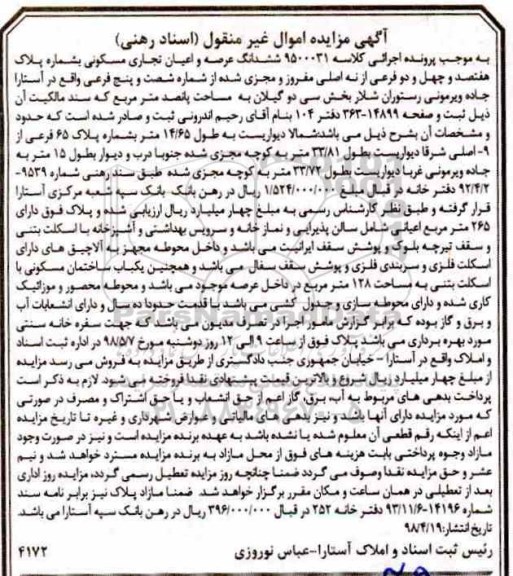 آگهی مزایده اموال غیر منقول (اسناد رهنی)
به موجب پرونده اجرائی کلاسه ۹۵۰۰۰۳۱ ششدانگ عرصه و اعیان تجاری مسکونی بشماره پلاک
هفتصد و چهل و دو فرعی از نه اصلی مفروز و مجزی شده از شماره شصت و پنج فرعی واقع در آستارا
جاده ویرمونی رستوران شلار بخش سی دو گیلان به مساحت پانصد متر مربع که سند مالکیت آن
ذیل ثبت و صفحه ۱۴۸۹۹-۳۶۳ دفتر ۱۰۴ بنام آقای رحیم اندرونی ثبت و صادر شده است که حدود
و مشخصات آن بشرح ذیل می باشدشمالا دیواریست به طول ۱۴/۶۵ متر بشماره پلاک ۶۵ فرعی از
۹- اصلی شرقا دیواریست بطول ۳۳/۸۱ متر به کوچه مجزی شده جنوبا درب و دیوار بطول ۱۵ متر به
جاده ویرمونی غربا دیواریست بطول ۳۳/۷۲ متر به کوچه مجزی شده طبق سند رهنی شماره ۹۵۳۹-
۹۲/۴/۲ دفتر خانه در قبال مبلغ ۱/۵۲۴/۰۰۰/۰۰۰ ریال در رهن بانک بانک سپه شعبه مرکزی آستارا
قرار گرفته و طبق نظر کارشناس رسمی به مبلغ چهار میلیارد ریال ارزیابی شده و پلاک فوق دارای
۲۶۵ متر مربع اعیانی شامل سالن پذیرایی و نماز خانه و سرویس بهداشتی و آشپزخانه با اسکلت بتنی
و سقف تیرچه بلوک و پوشش سقف ایرانیت می باشد و داخل محوطه مجهز به آلاچیق های دارای
اسکلت فلزی و سربندی فلزی و پوشش سقف سفال می باشد و همچنین یکباب ساختمان مسکونی با
اسکلت بتنی به مساحت ۱۲۸ متر مربع در داخل عرصه موجود می باشد و محوطه محصور و موزائیک
کاری شده و دارای محوطه سازی و جدول کشی می باشد با قدمت حدودا ده سال و دارای انشعابات آب
و برق و گاز بوده که برابر گزارش مامور اجرا در تصرف مدیون می باشد که جهت سفره خانه سنتی
مورد بهره برداری می باشد پلاک فوق از ساعت ۹ الی ۱۲ روز دوشنبه مورخ ۹۸/۵/۷ در اداره ثبت اسناد
و املاک واقع در آستارا - خیابان جمهوری جنب دادگستری از طریق مزایده به فروش می رسد مزایده
از مبلغ چهار میلیارد ریال شروع و بالاترین قیمت پیشنهادی نقدا فروخته می شود لازم به ذکر است
پرداخت بدهی های مربوط به آب، برق، گاز اعم از حق انشعاب و یا حق اشتراک و مصرف در صورتی
که مورد مزایده دارای آنها باشد و نیز بدهی های مالیاتی و عوارض شهرداری و غیره تا تاریخ مزایده
اعم از اینکه رقم قطعی آن معلوم شده یا نشده باشد به عهده برنده مزایده است و نیز در صورت وجود
مازاد وجوه پرداختی بابت هزینه های فوق از محل مازاد به برنده مزایده مسترد خواهد شد و نیم
عشر و حق مزایده نقدا وصول می گردد ضمنا چنانچه روز مزایده تعطیل رسمی گردد، مزایده روز اداری
بعد از تعطیلی در همان ساعت و مکان مقرر برگزار خواهد شد. ضمنا مازاد پلاک نیز برابر نامه سند
شماره ۱۴۱۹۶-۹۳/۱۱/۶ دفتر خانه ۲۵۲ در قبال ۳۹۶/۰۰۰/۰۰۰ ریال در رهن بانک سپه آستارا می باشد.
تاریخ انتشار: ۹۸/۴/۱۹
رئیس ثبت اسناد و املاک آستارا-عباس نوروزی
۴۱۷۲